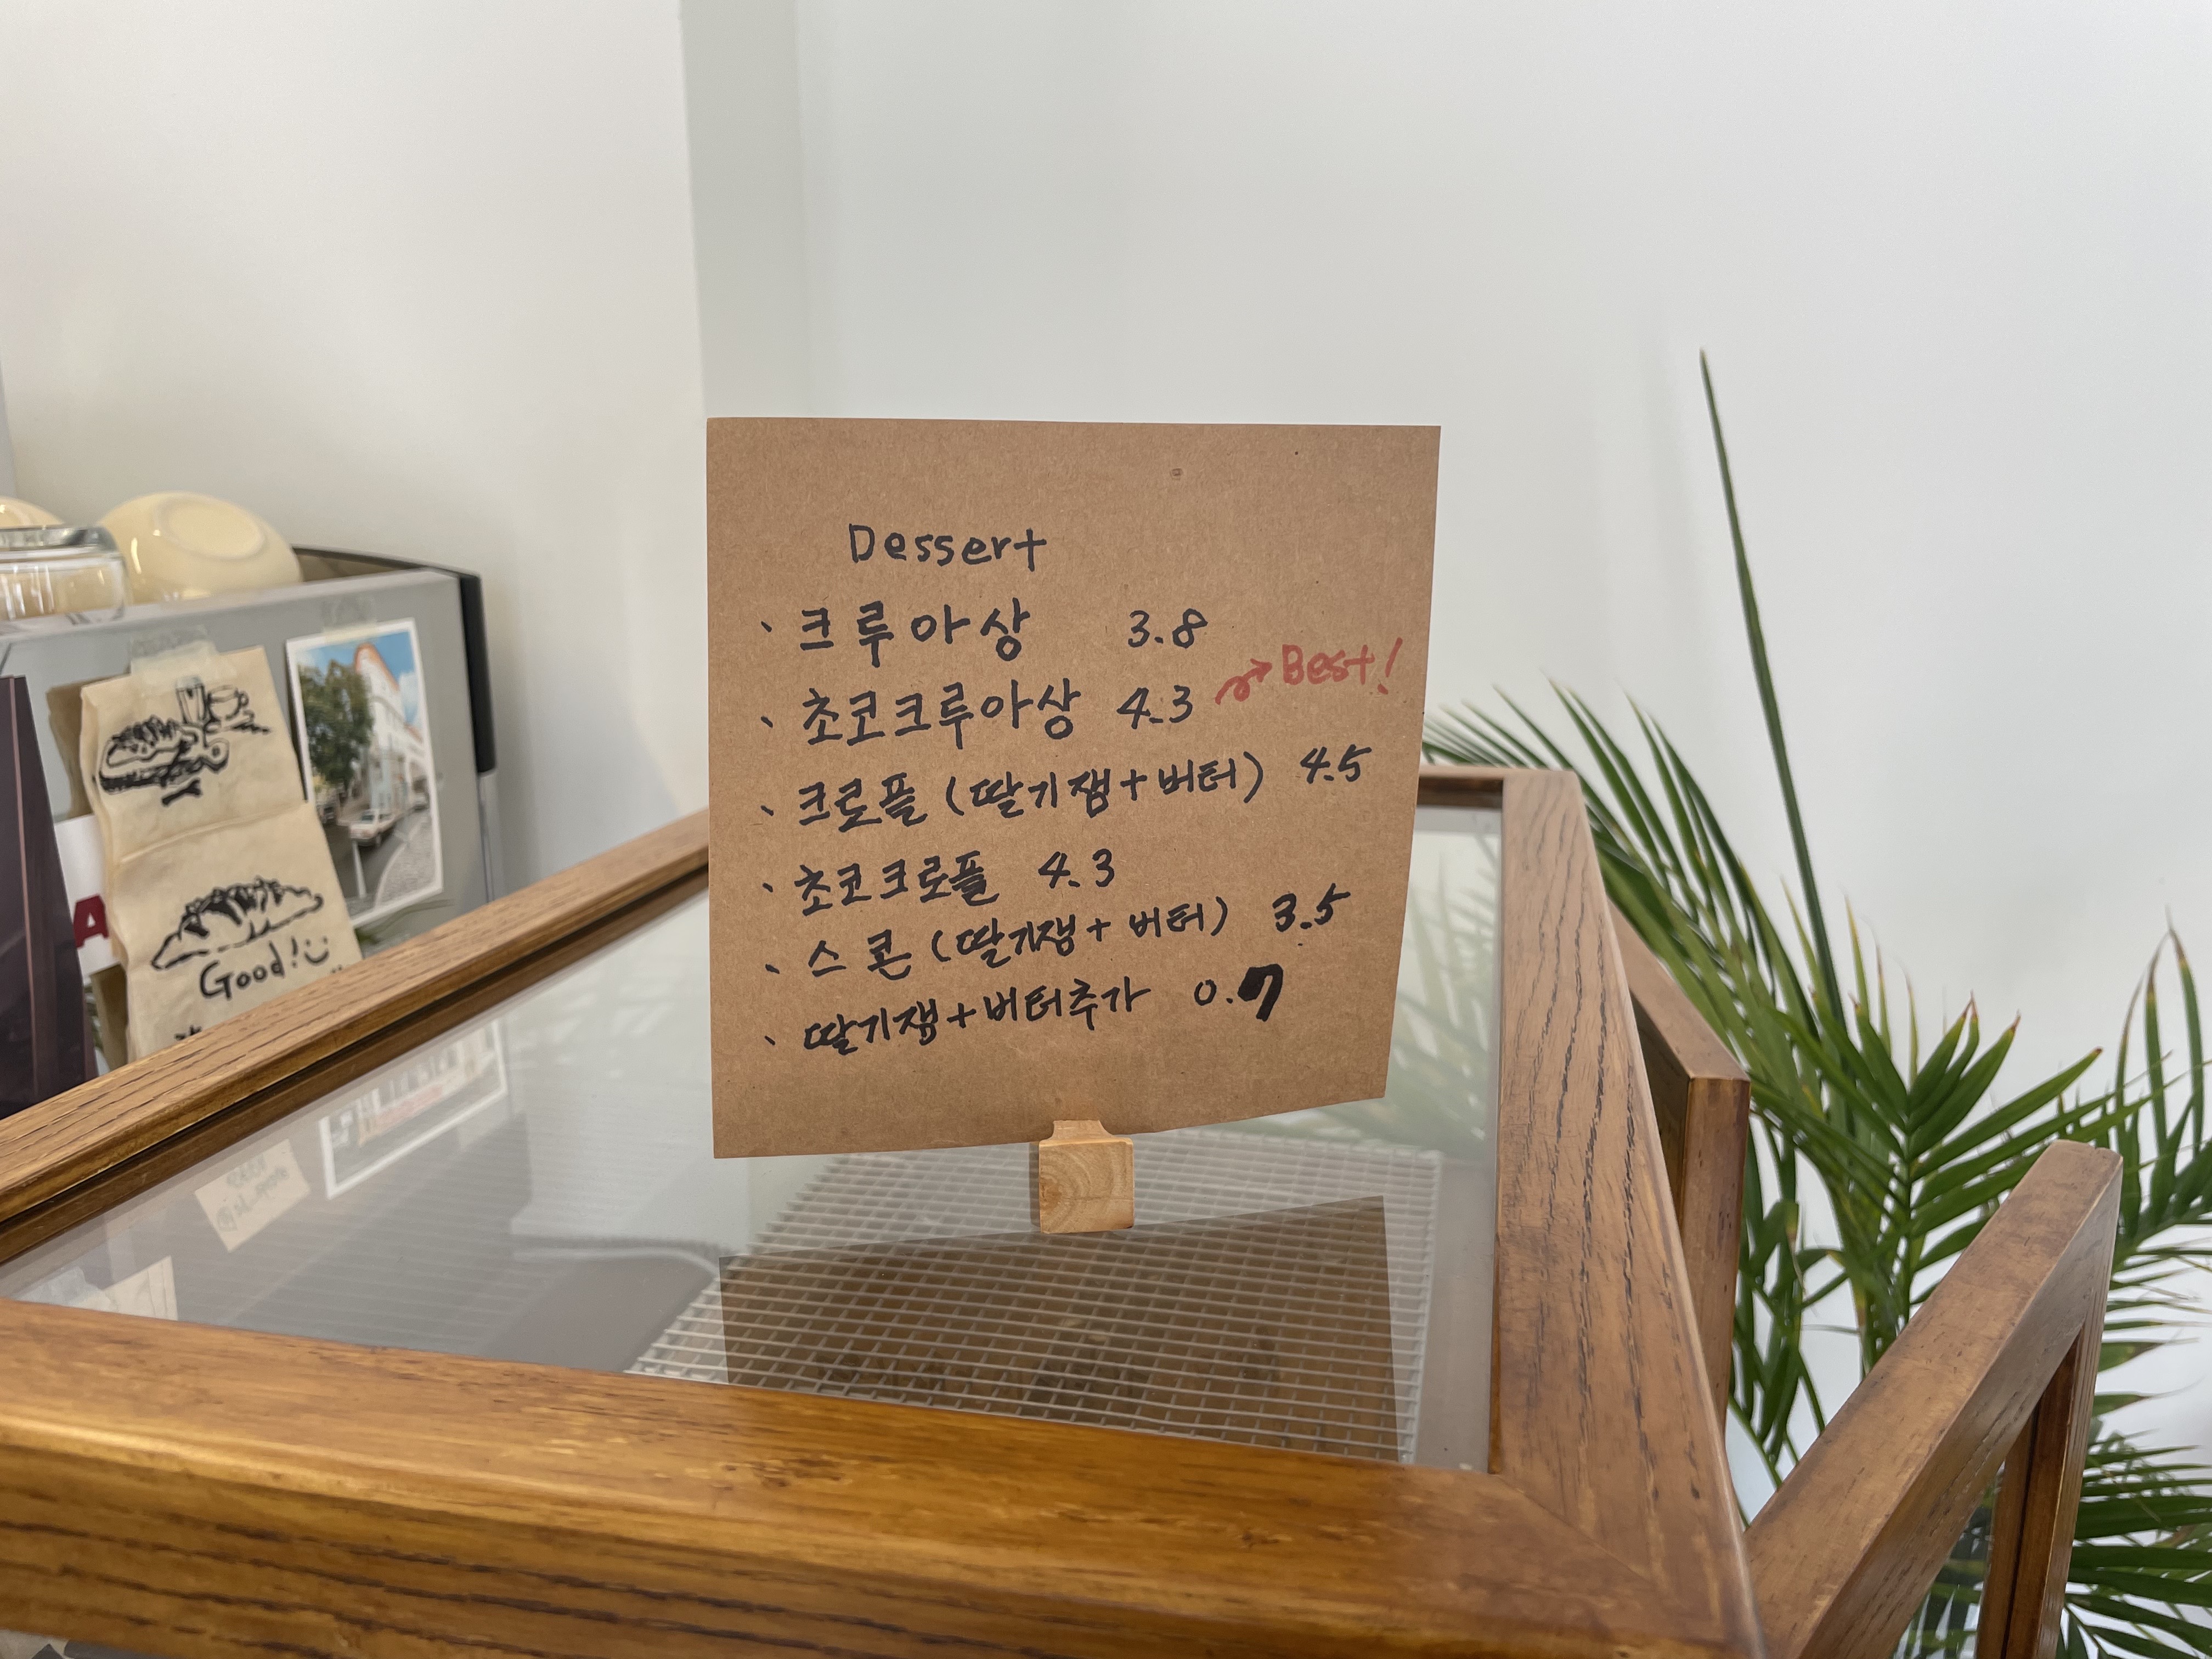 Dessert
· 크루아상 3.8
· 초코크루아상 4.3 → Best!
· 크로플 (딸기잼+버터) 4.5
· 초코크로플 4.3
· 스콘 (딸기잼+버터) 3.5
· 딸기잼+버터추가 0.7
Good!
A